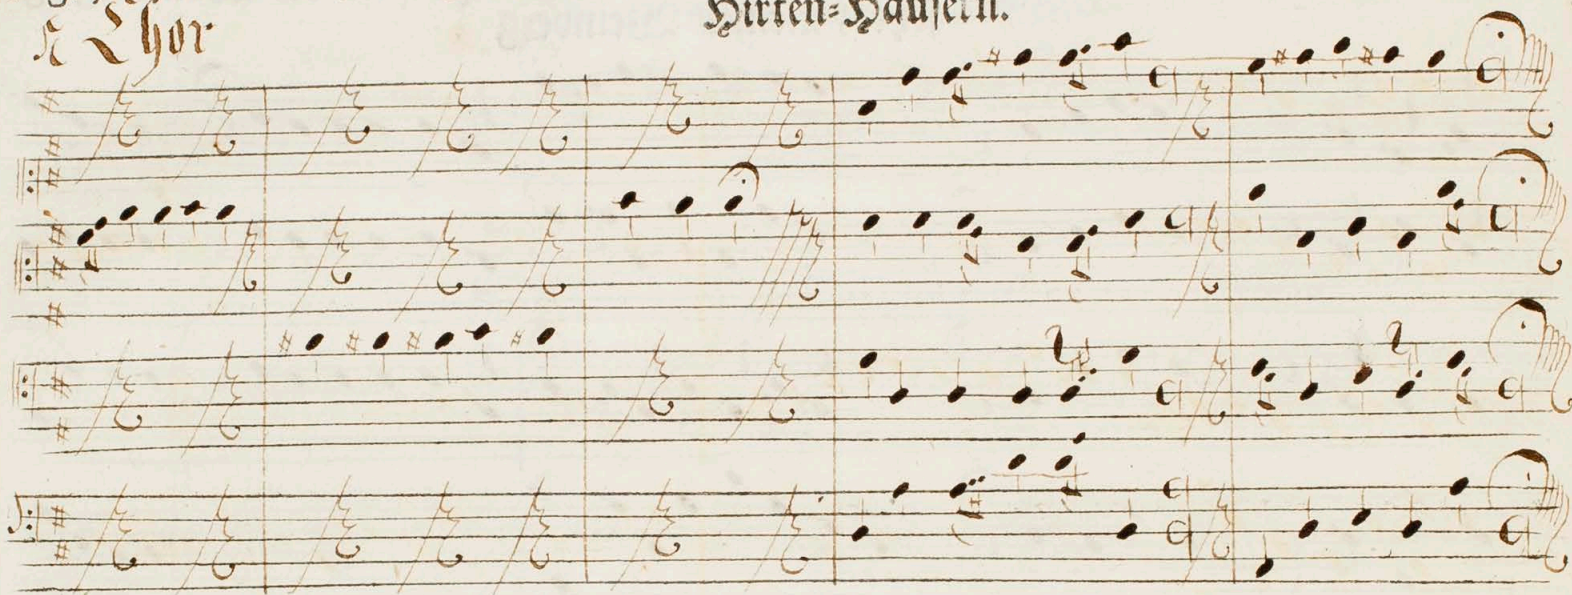 Hirten-Häusern.
Chor